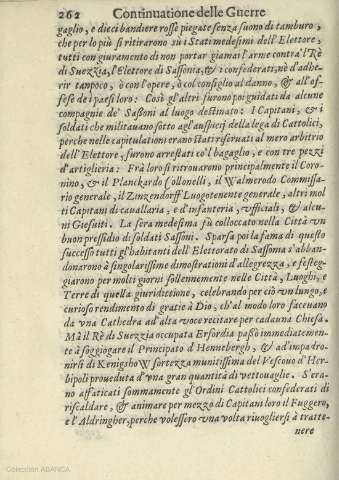 262 Continuatione delle Guerre
gaglio, e dieci bandiere rosse piegate senza suono di tamburo,
che per lo più si ritirarono sui Stati medesimi dell'Elettore,
tutti con giuramento di non portar giamai l'arme contra'l Rè
di Suezzia, l'Elettore di Sassonia, & i confederati, nè d'adhe-
rir tampoco, ò con l'opere, ò col consiglio al danno, & all'of-
fese de i paesi loro: Così gl'altri furono poi guidati da alcune
compagnie de' Sassoni al luogo destinato: I Capitani, & i
soldati che militauano sotto agl'auspicij della lega di Cattolici,
perche nelle capitulationi erano stati reseruati al mero arbitrio
dell'Elettore, furono arrestati co'l bagaglio, e con tre pezzi
d'artiglieria: Frà loro si ritrouarono principalmente il Coro-
nino, & il Planckardo Collonelli, il Walmerodo Commissa-
rio generale, il Zinzendorff Luogotenente generale, altri mol
ti Capitani di cauallaria, e d'infanteria, vfficiali, & alcu-
ni Giesuiti. La sera medesima fù colloccato nella Città vn
buon pressidio di soldati Sassoni. Sparsa poi la fama di questo
successo tutti gl'habitanti dell'Elettorato di Sassonia s'abban-
donarono à singolarissime dimostrationi d'allegrezza, e festeg-
giarono per molti giorni sollennemente nelle Città, Luoghi, e
Terre di quella giuriditione, celebrando per ciò vn lungo, e
curioso rendimento di gratie à Dio, ch'al modo loro faceuano
da vna Cathedra ad'alta voce recitare per cadauna Chiesa.
Mà il Rè di Suezzia occupata Erfordia passò immediatemen-
te à soggiogare il Principato d'Hennebergh, & ad'impadro-
nirsi di Kenigshow fortezza munitissima del Vescouo d'Her-
bipoli proueduta d'vna gran quantità di vettouaglie. S'era-
no affaticati sommamente gl'Ordini Cattolici confederati di
riscaldare, & animare per mezzo di Capitani loro il Fuggero,
e l'Aldringher, perche volessero vna volta riuogliersi à tratte-
nere
Colección ABANCA